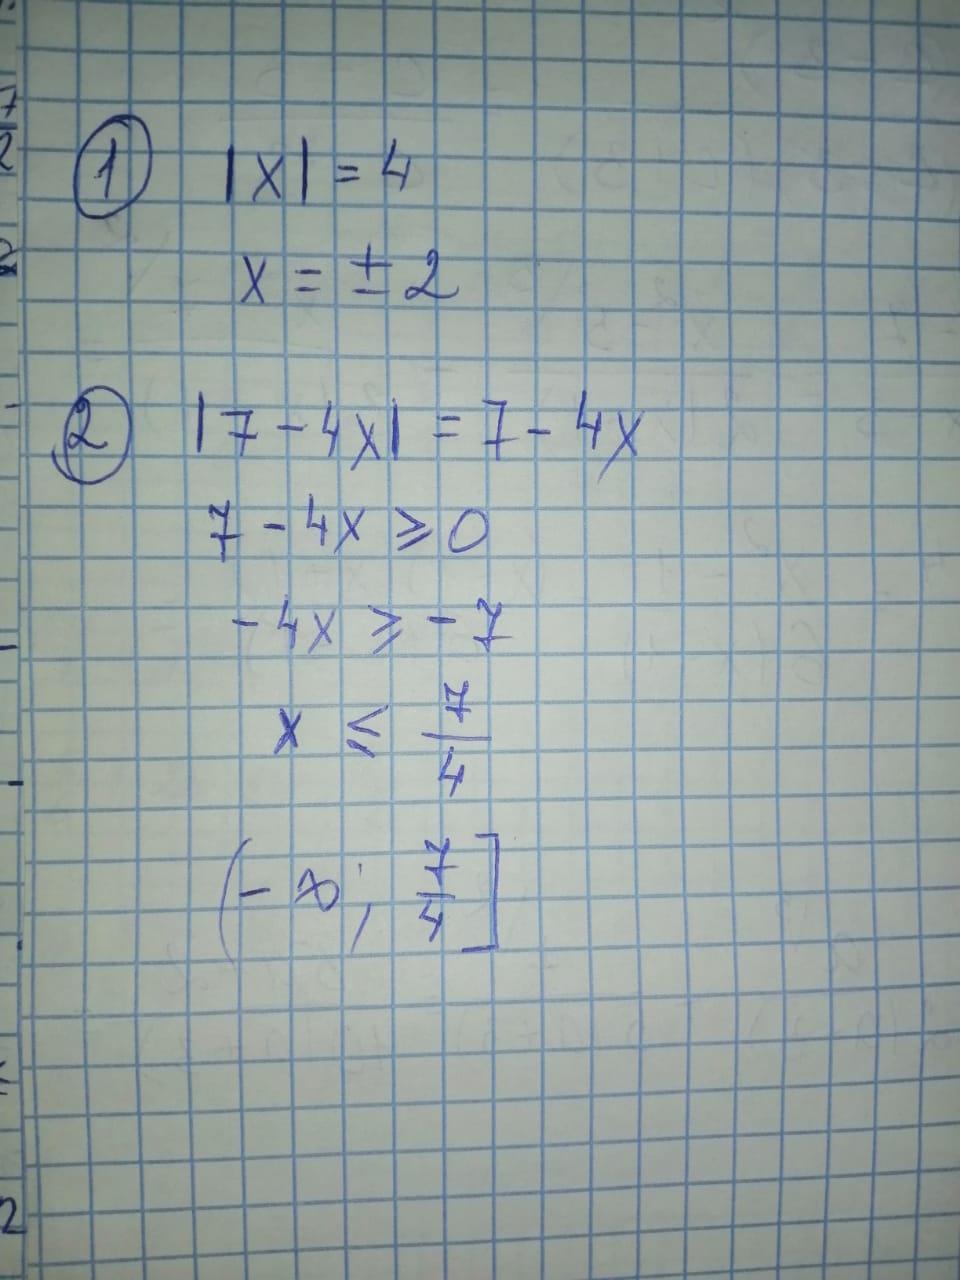 1 |x| = 4
x = ± 2
2 |7 - 4x| = 7 - 4x
7 - 4x ⩾ 0
- 4x ⩾ - 7
x ⩽ 7/4
(- ∞; 7/4]